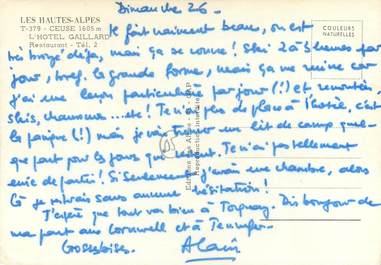 LES HAUTES-ALPES
T-379 - CEUSE 1605 m
L'HOTEL GAILLARD
Restaurant - Tél. 2
COULEURS
NATURELLES
Dimanche 26 -
Il fait vraiment beau, on est
très bronzé déjà, mais ça se couvre! Ski 2 à 3 heures par
jour, bref, la grande forme, mais ça me ruine car
j'ai une leçon particulière par jour (!) et remontées,
skis, chaussures... etc! Je n'ai plus de place à l'hôtel, c'est
la panique (!) mais je vais trouver un lit de camp quel-
que part pour les jours qui restent. Je n'ai pas tellement
envie de partir! Si seulement j'avais une chambre, alors
là je resterais sans aucune hésitation!
J'espère que tout va bien à Torquay. Dis bonjour de
ma part aux Cornwell et à Jennifer.
Grosses bises.
Alain